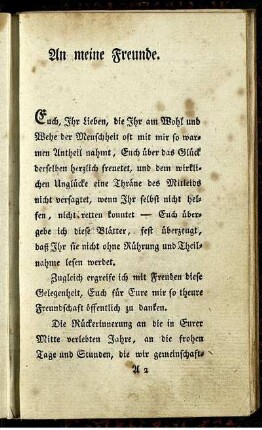 An meine Freunde.
Euch, Ihr Lieben, die Ihr am Wohl und
Wehe der Menschheit oft mit mir so war-
men Antheil nahmt, Euch über das Glück
derselben herzlich freuetet, und dem wirkli-
chen Unglücke eine Thräne des Mitleids
nicht versagtet, wenn Ihr selbst nicht hel-
fen, nicht retten konntet — Euch über-
gebe ich diese Blätter, fest überzeugt,
daß Ihr sie nicht ohne Rührung und Theil-
nahme lesen werdet.
Zugleich ergreife ich mit Freuden diese
Gelegenheit, Euch für Eure mir so theure
Freundschaft öffentlich zu danken.
Die Rückerinnerung an die in Eurer
Mitte verlebten Jahre, an die frohen
Tage und Stunden, die wir gemeinschaft-
A 2